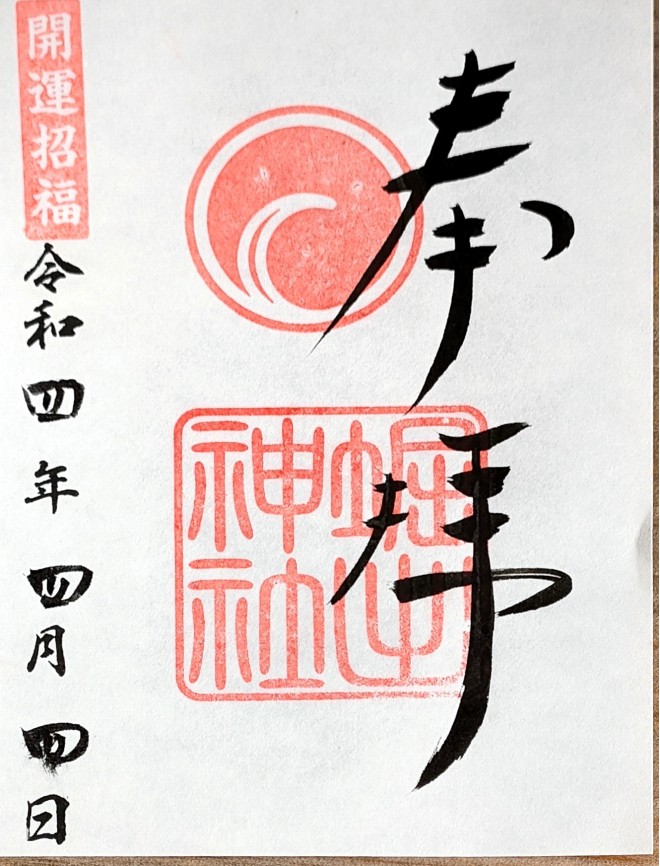 奉拝
堀出
神社
開運招福
令和四年四月四日